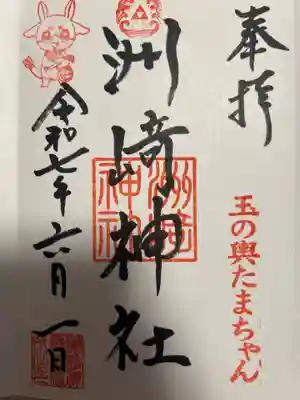 奉拝
玉の輿たまちゃん
洲崎神社
洲崎神社
令和七年六月一日